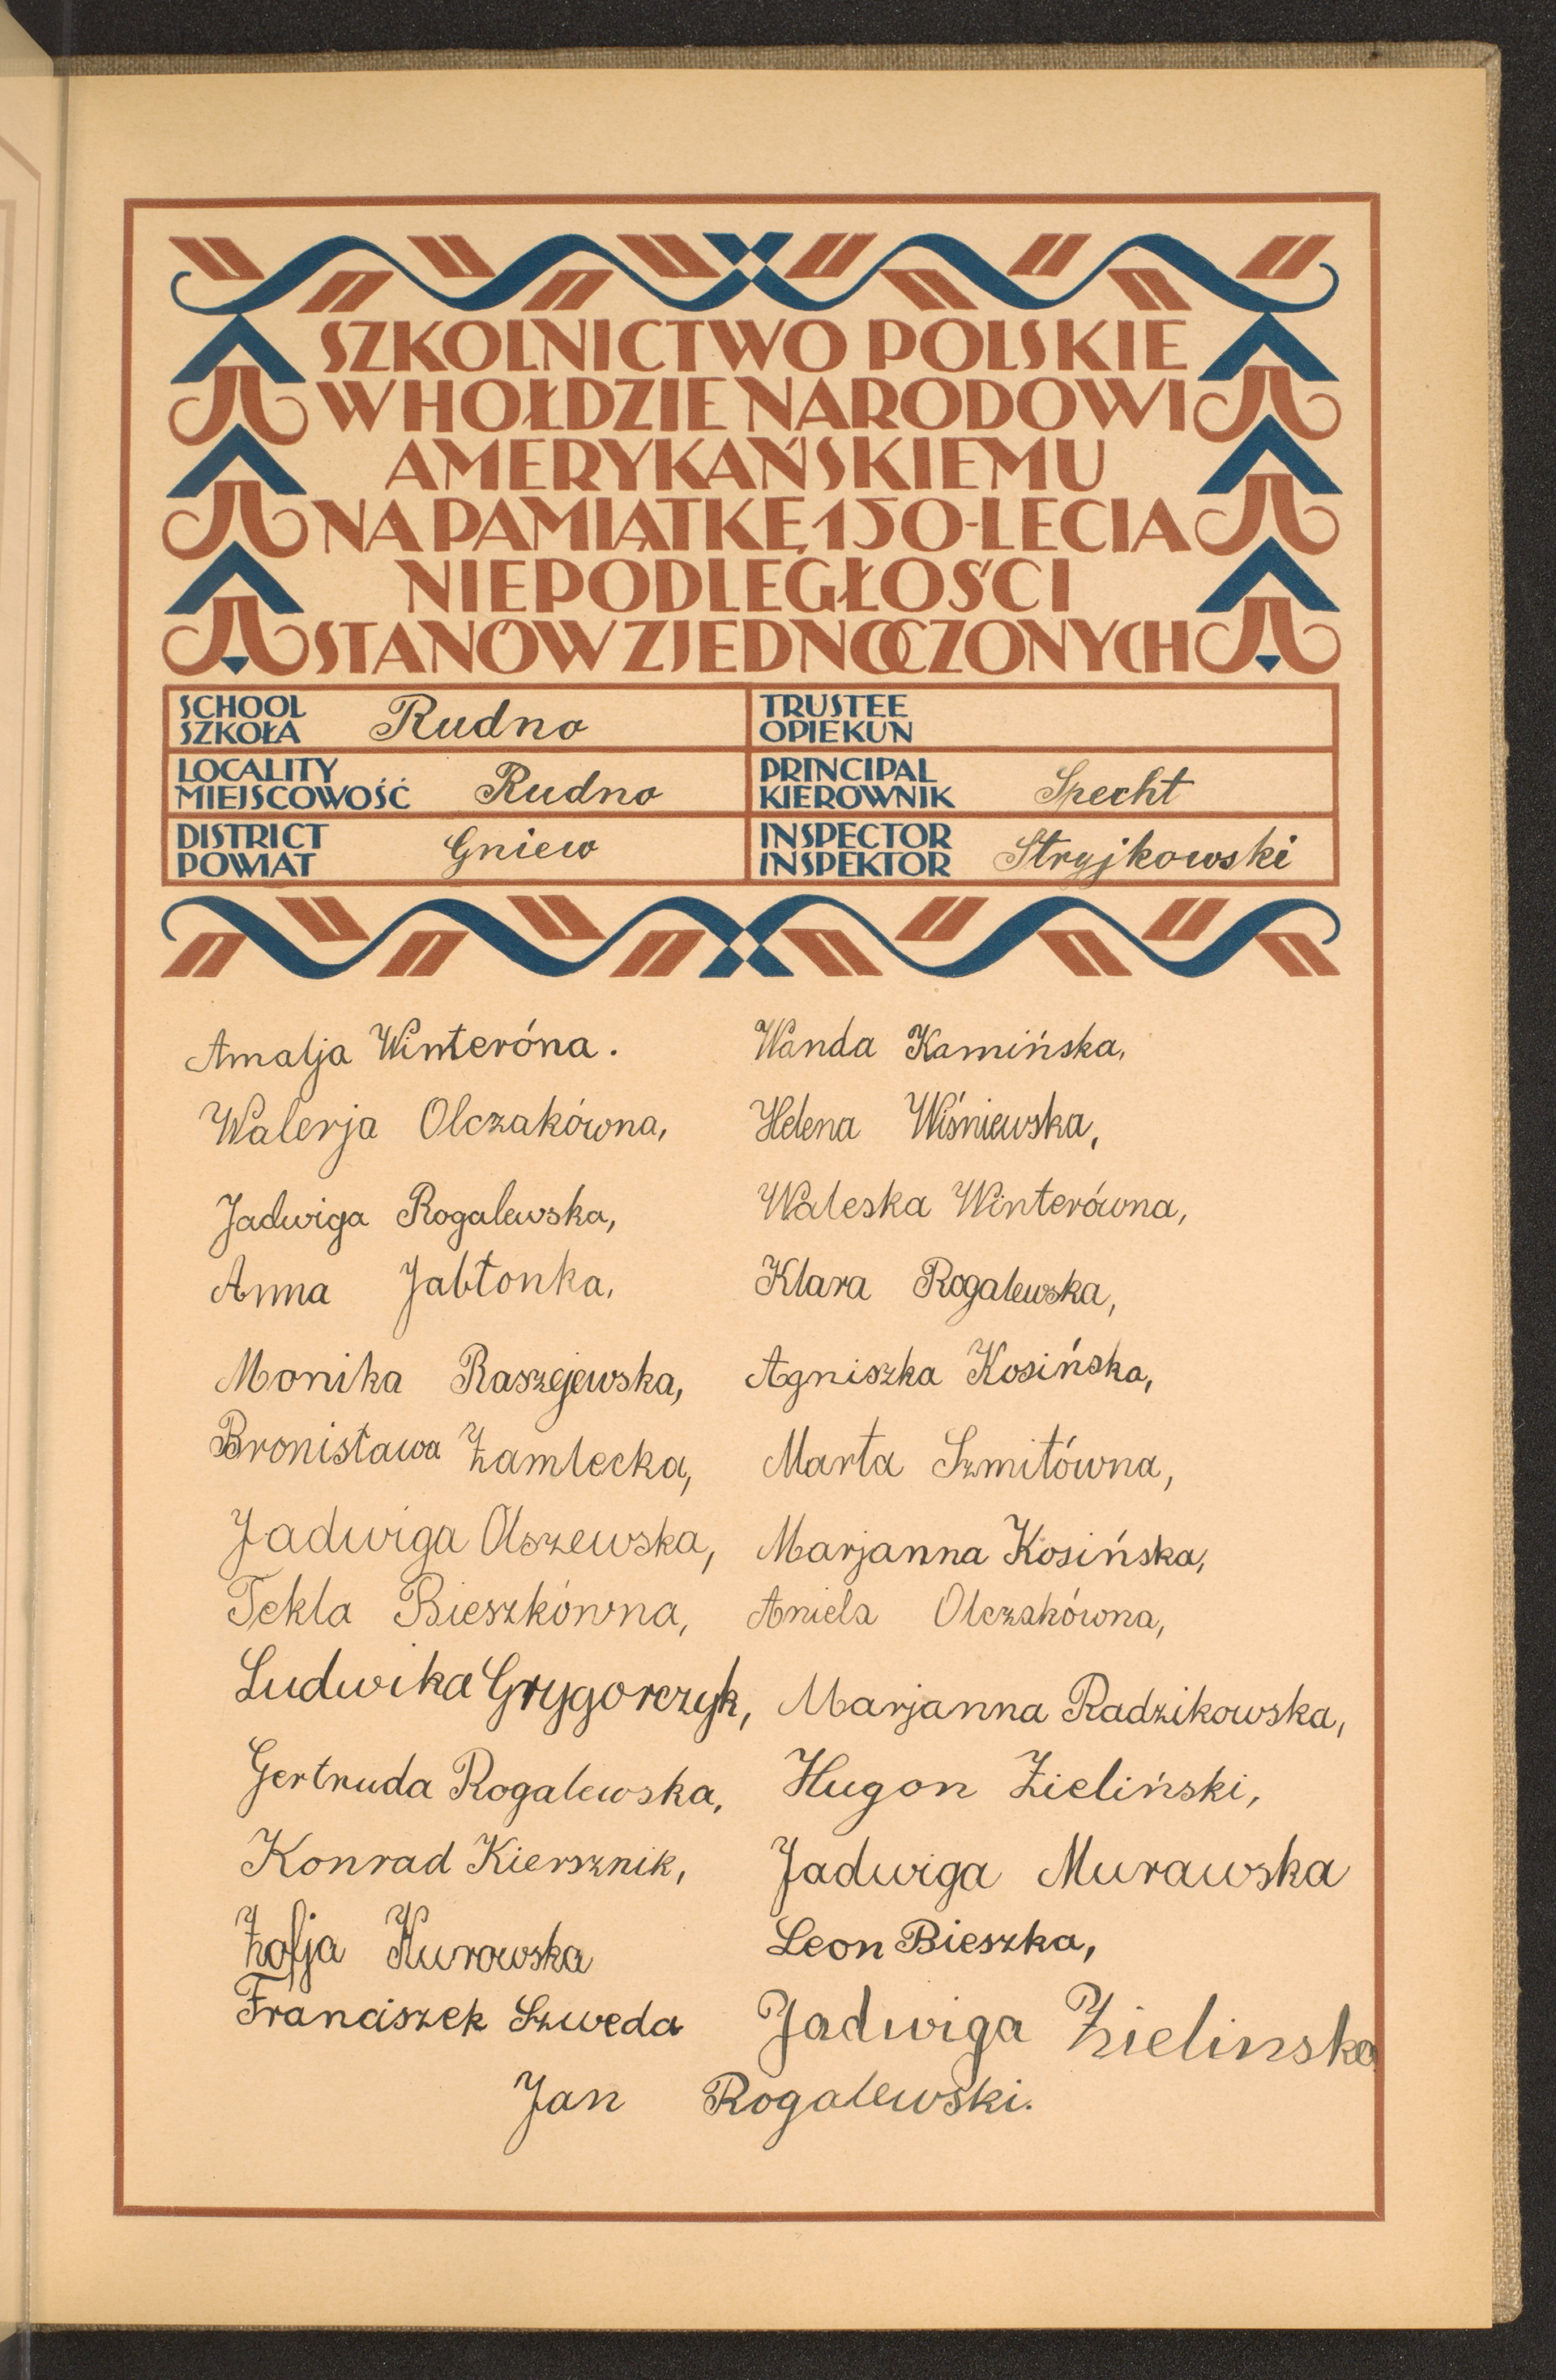 SZKOLNICTWO POLSKIE
W HOŁDZIE NARODOWI
AMERYKAŃSKIEMU
NA PAMIĄTKĘ 150-LECIA
NIEPODLEGŁOŚCI
STANÓW ZJEDNOCZONYCH
SCHOOL
SZKOŁA
Rudno
TRUSTEE
OPIEKUN
LOCALITY
MIEJSCOWOŚĆ
Rudno
PRINCIPAL
KIEROWNIK
Specht
DISTRICT
POWIAT
Gniew
INSPECTOR
INSPEKTOR
Stryjkowski
Amalja Winteróna.
Walerja Olczakówna,
Jadwiga Rogalewska,
Anna Jabłonka,
Monika Raszejewska,
Bronisława Zamlecka,
Jadwiga Olszewska,
Tekla Bieszkówna,
Ludwika Grygorczyk,
Gertruda Rogalewska,
Konrad Kiersznik,
Zofja Kurowska
Franciszek Szweda
Wanda Kamińska,
Helena Wiśniewska,
Waleska Winterówna,
Klara Rogalewska,
Agniszka Kosińska,
Marta Szmitówna,
Marjanna Kosińska,
Aniela Olczakówna,
Marjanna Radzikowska,
Hugon Zieliński,
Jadwiga Murawska
Leon Bieszka,
Jadwiga Zielinska
Jan Rogalewski.